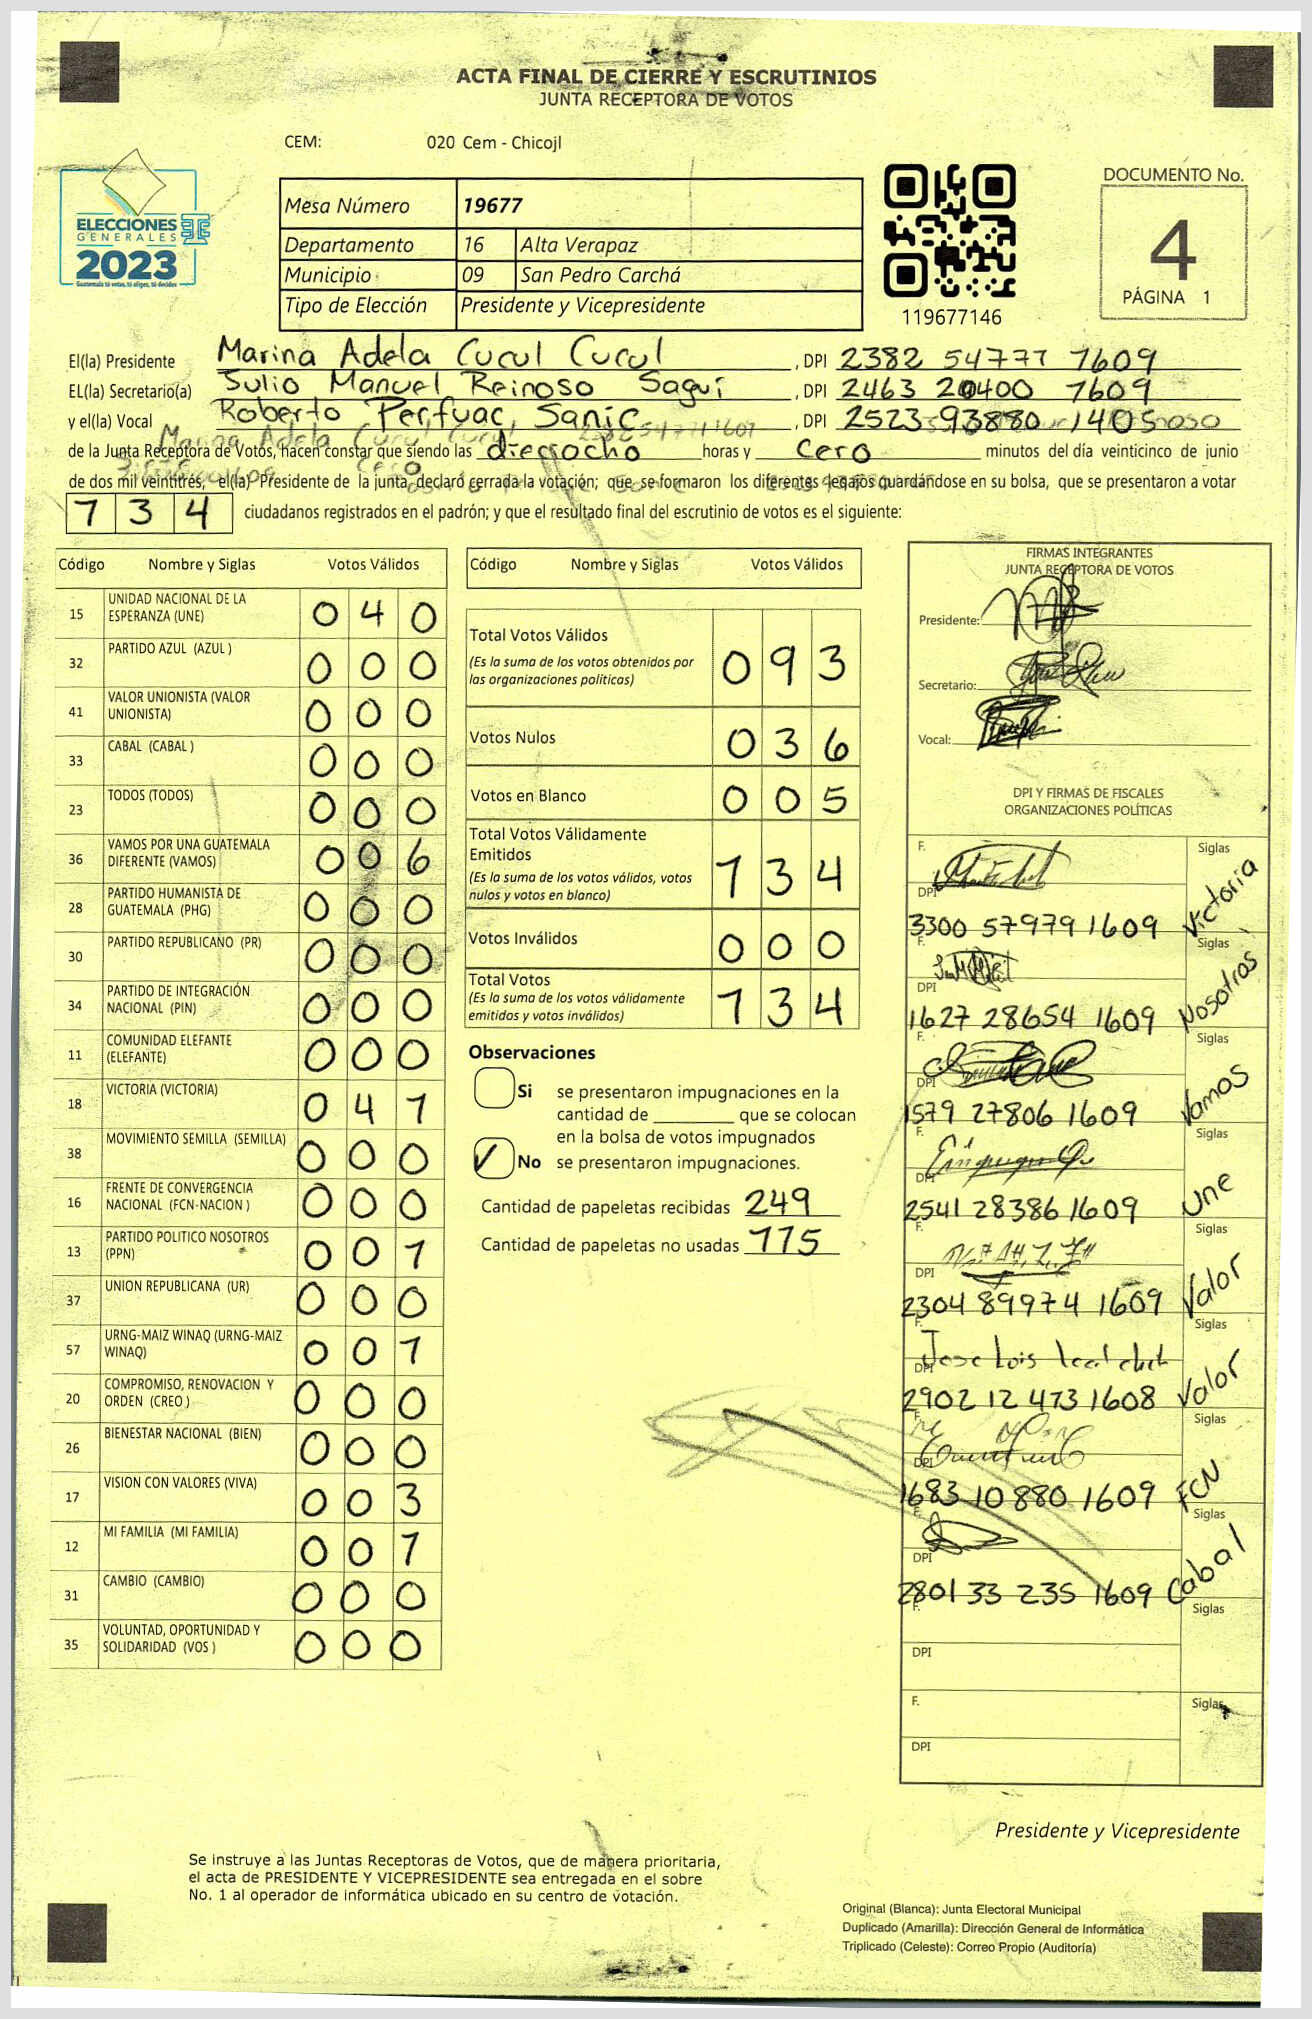 ACTA FINAL DE CIERRE Y ESCRUTINIOS
JUNTA RECEPTORA DE VOTOS
CEM: 020 Cem - Chicojl
ELECCIONES
GENERALES
2023
Guatemala tú votas, tú eliges, tú decides
Mesa Número 19677
Departamento 16 Alta Verapaz
Municipio 09 San Pedro Carchá
Tipo de Elección Presidente y Vicepresidente
119677146
DOCUMENTO No.
4
PÁGINA 1
El(la) Presidente Marina Adela Cucul Cucul, DPI 2382 54777 1609
EL(la) Secretario(a) Julio Manuel Reinoso Saguí, DPI 2463 20400 1609
y el(la) Vocal Roberto, Sanic, DPI 2523 93880 1405
de la Junta Receptora de Votos, hacen constar que siendo las dieciocho horas y Cero minutos del día veinticinco de junio
de dos mil veintitrés, el(la) Presidente de la junta, declaró cerrada la votación; que se formaron los diferentes legajos guardándose en su bolsa, que se presentaron a votar
134 ciudadanos registrados en el padrón; y que el resultado final del escrutinio de votos es el siguiente:
Código Nombre y Siglas Votos Válidos
15 UNIDAD NACIONAL DE LA ESPERANZA (UNE) 040
32 PARTIDO AZUL (AZUL ) 000
41 VALOR UNIONISTA (VALOR UNIONISTA) 000
33 CABAL (CABAL ) 000
23 TODOS (TODOS) 000
36 VAMOS POR UNA GUATEMALA DIFERENTE (VAMOS) 006
28 PARTIDO HUMANISTA DE GUATEMALA (PHG) 000
30 PARTIDO REPUBLICANO (PR) 000
34 PARTIDO DE INTEGRACIÓN NACIONAL (PIN) 000
11 COMUNIDAD ELEFANTE (ELEFANTE) 000
18 VICTORIA (VICTORIA) 041
38 MOVIMIENTO SEMILLA (SEMILLA) 000
16 FRENTE DE CONVERGENCIA NACIONAL (FCN-NACION ) 000
13 PARTIDO POLITICO NOSOTROS (PPN) 001
37 UNION REPUBLICANA (UR) 000
57 URNG-MAIZ WINAQ (URNG-MAIZ WINAQ) 001
20 COMPROMISO, RENOVACION Y ORDEN (CREO ) 000
26 BIENESTAR NACIONAL (BIEN) 000
17 VISION CON VALORES (VIVA) 003
12 MI FAMILIA (MI FAMILIA) 001
31 CAMBIO (CAMBIO) 000
35 VOLUNTAD, OPORTUNIDAD Y SOLIDARIDAD (VOS ) 000
Código Nombre y Siglas Votos Válidos
Total Votos Válidos 093
(Es la suma de los votos obtenidos por
las organizaciones políticas)
Votos Nulos 036
Votos en Blanco 005
Total Votos Válidamente
Emitidos 134
(Es la suma de los votos válidos, votos
nulos y votos en blanco)
Votos Inválidos 000
Total Votos 134
(Es la suma de los votos válidamente
emitidos y votos inválidos)
Observaciones
Si se presentaron impugnaciones en la
cantidad de ________ que se colocan
en la bolsa de votos impugnados
No se presentaron impugnaciones.
Cantidad de papeletas recibidas 249
Cantidad de papeletas no usadas 115
FIRMAS INTEGRANTES
JUNTA RECEPTORA DE VOTOS
Presidente:
Secretario:
Vocal:
DPI Y FIRMAS DE FISCALES
ORGANIZACIONES POLÍTICAS
F. Siglas
DPI
3300 57979 1609 Victoria
F. Siglas
DPI
1627 28654 1609 Nosotros
F. Siglas
DPI
1579 27806 1609 Vamos
F. Siglas
DPI
2541 28386 1609 Une
F. Siglas
DPI
2304 89974 1609 Valor
F. Siglas
DPI Jose Luis
2902 12 473 1608 Valor
F. Siglas
DPI
1683 10 880 1609 FCN
F. Siglas
DPI
2801 33 235 1609 Cabal
F. Siglas
DPI
F. Siglas
DPI
Presidente y Vicepresidente
Se instruye a las Juntas Receptoras de Votos, que de manera prioritaria,
el acta de PRESIDENTE Y VICEPRESIDENTE sea entregada en el sobre
No. 1 al operador de informática ubicado en su centro de votación.
Original (Blanca): Junta Electoral Municipal
Duplicado (Amarilla): Dirección General de Informática
Triplicado (Celeste): Correo Propio (Auditoría)